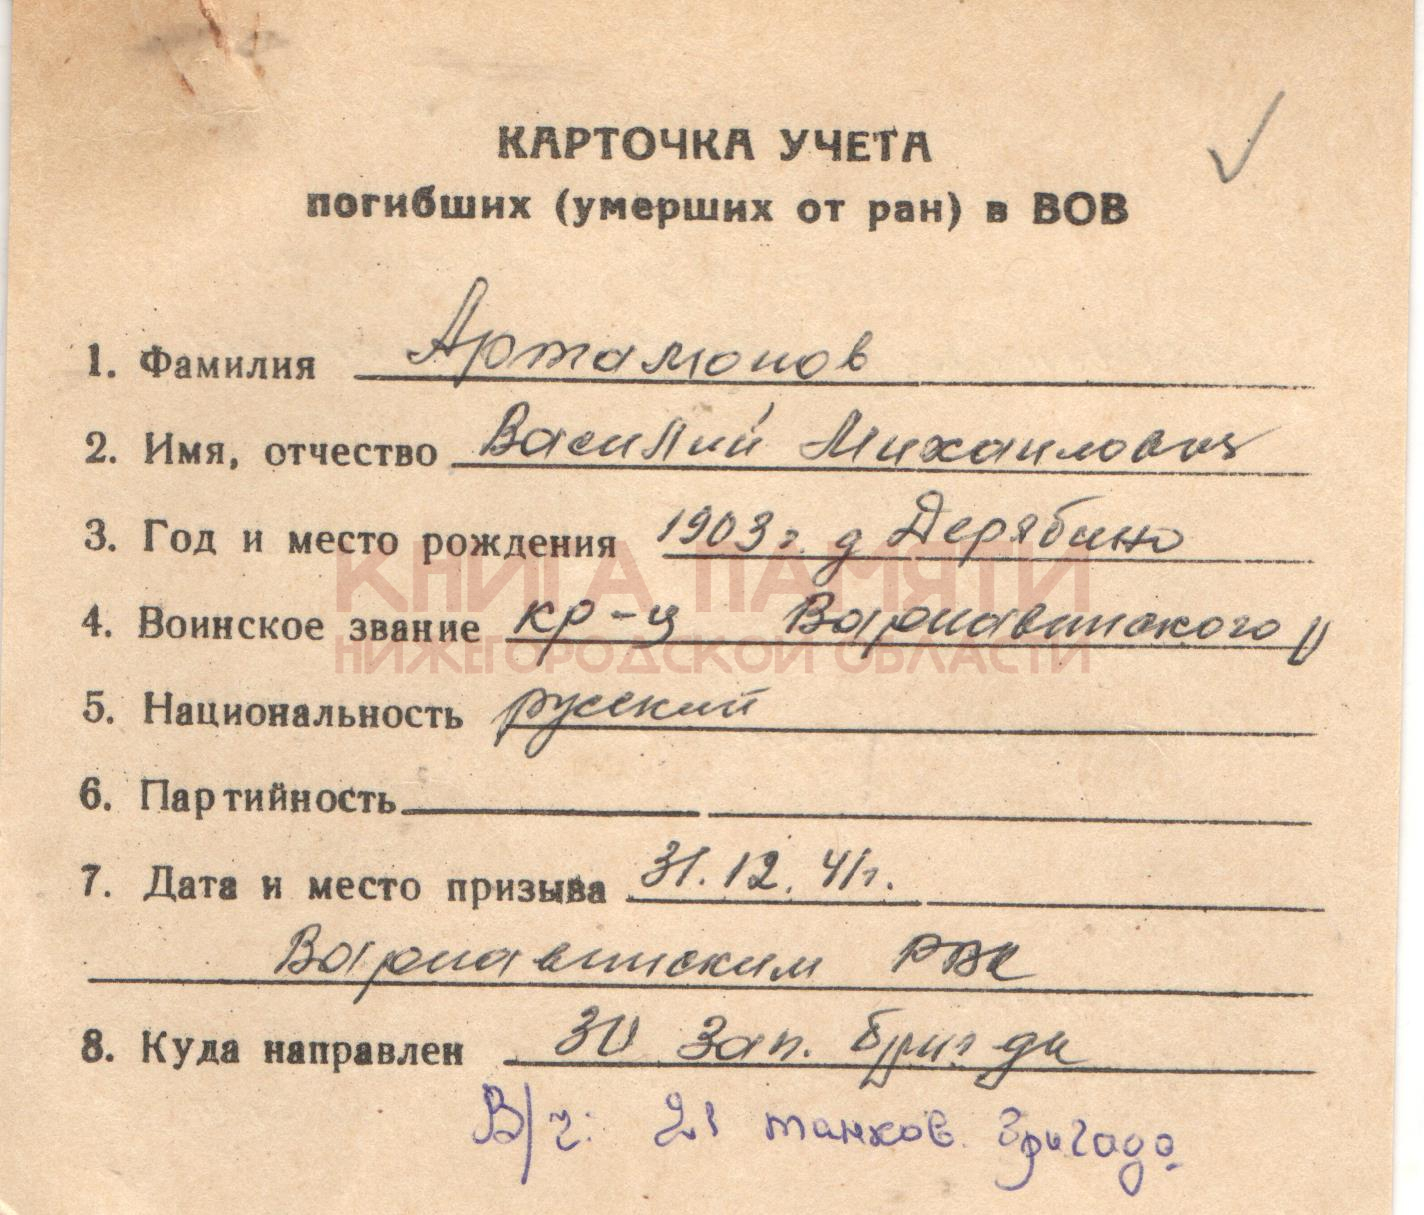 КАРТОЧКА УЧЕТА
погибших (умерших от ран) в ВОВ
1. Фамилия Артамонов
2. Имя, отчество Василий Михаилович
3. Год и место рождения 1903 г. д Дерябино
4. Воинское звание кр-ц Варнавинского
5. Национальность русский
6. Партийность
7. Дата и место призыва 31.12.41г.
Варнавинским РВК
8. Куда направлен 30 Зап. бригада
В/ч: 21 танков. бригада.
КНИГА ПАМЯТИ
НИЖЕГОРОДСКОЙ ОБЛАСТИ